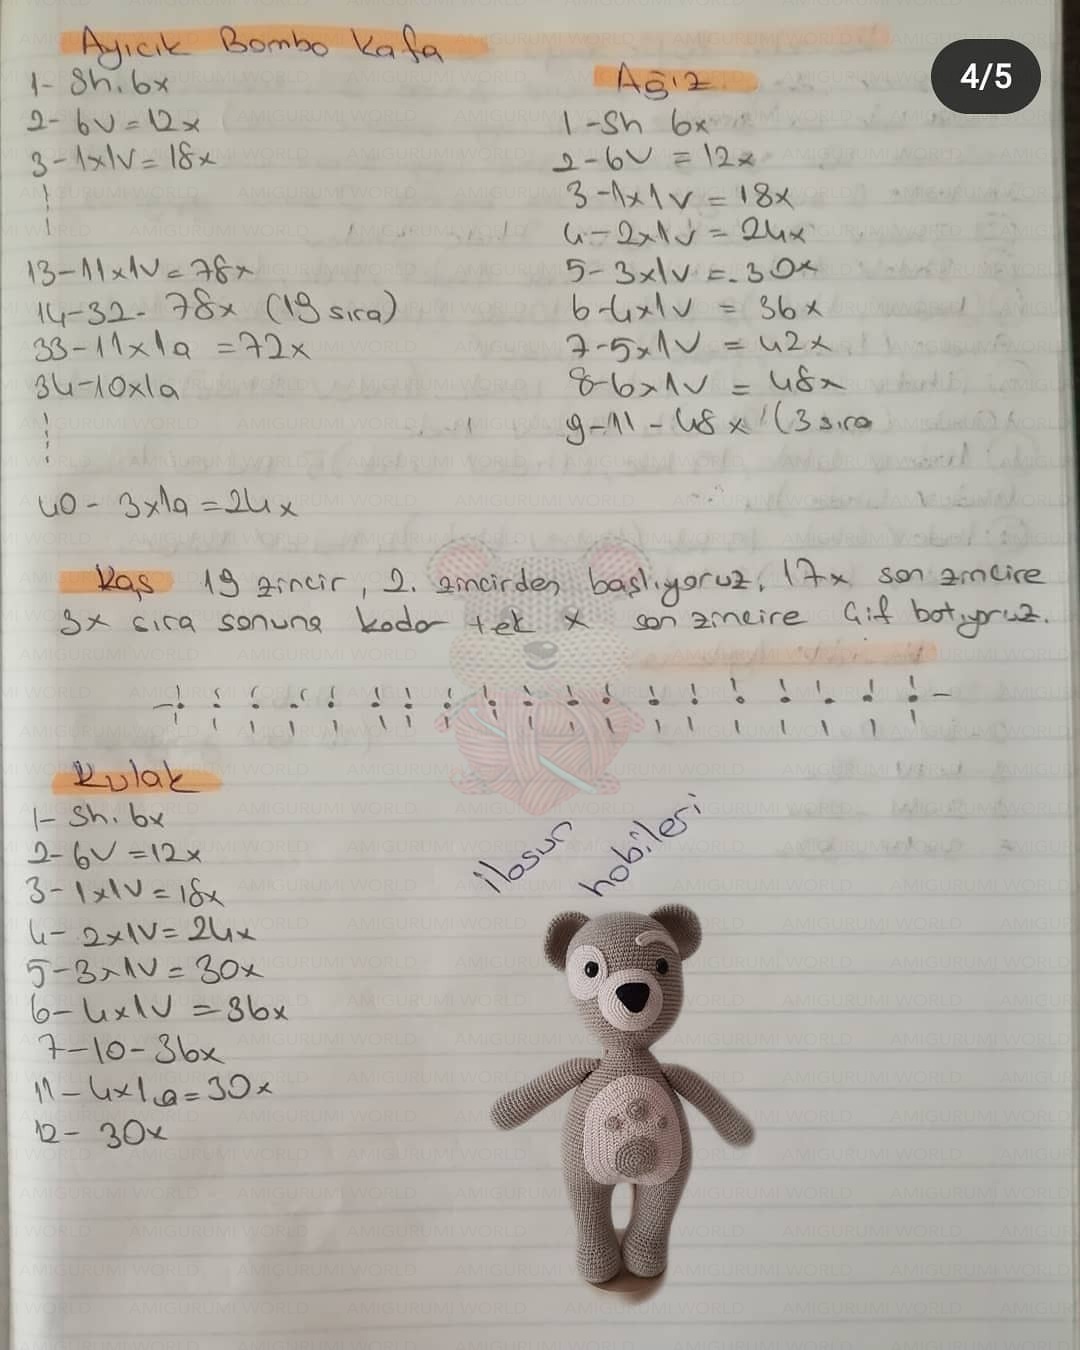 Ayıcık Bombo Kafa
1- Sh. 6x
2- 6V = 12x
3- 1x1V = 18x
13- 11x1V = 78x
14-32- 78x (19 sıra)
33- 11x1a = 72x
34- 10x1a
40 - 3x1a = 24x
Ağız
1- Sh 6x
2- 6V = 12x
3- 1x1V = 18x
4- 2x1V = 24x
5- 3x1V = 30x
6- 4x1V = 36x
7- 5x1V = 42x
8- 6x1V = 48x
9-11 - 48x (3 sıra
Kaş 19 zincir, 2. zincirden başlıyoruz. 17x son zincire
3x sıra sonuna kadar tek x son zincire Çif batıyoruz.
Kulak
1- Sh. 6x
2- 6V = 12x
3- 1x1V = 18x
4- 2x1V = 24x
5- 3x1V = 30x
6- 4x1V = 36x
7-10- 36x
11- 4x1a = 30x
12- 30x
hobileri
4/5
AMIGURUMI WORLD